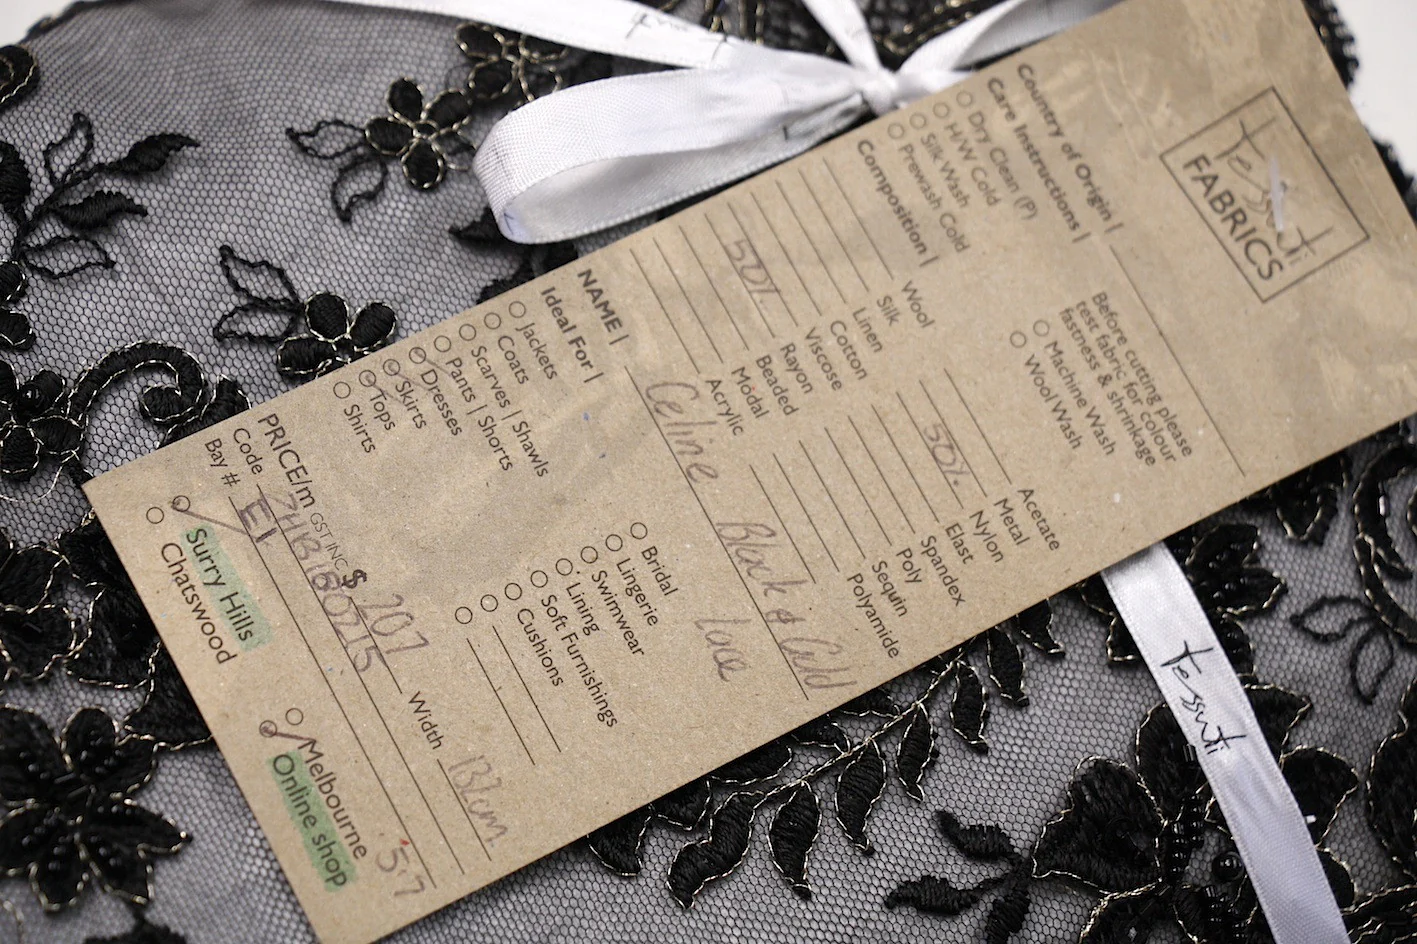 Tessuti
FABRICS
Country of Origin |
Care Instructions |
Dry Clean (P)
H/W Cold
Silk Wash
Prewash Cold
Before cutting please
test fabric for colour
fastness & shrinkage
Machine Wash
Wool Wash
Composition |
Wool
Silk
Linen
Cotton
Viscose
50% Rayon
Beaded
Modal
Acrylic
Acetate
Metal
50% Nylon
Elast
Spandex
Poly
Sequin
Polyamide
NAME | Celine Black & Gold
Lace
Ideal For |
Jackets
Coats
Scarves | Shawls
Pants | Shorts
Dresses
Skirts
Tops
Shirts
Bridal
Lingerie
Swimwear
Lining
Soft Furnishings
Cushions
PRICE/m GST INC $ 207 Width
Code
Bay # E1
5.7
Surry Hills
Chatswood
Melbourne
Online shop
Tessuti